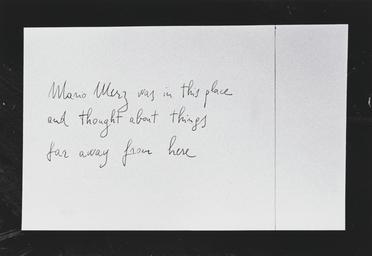 Mario Merz was in this place
and thought about things
far away from here